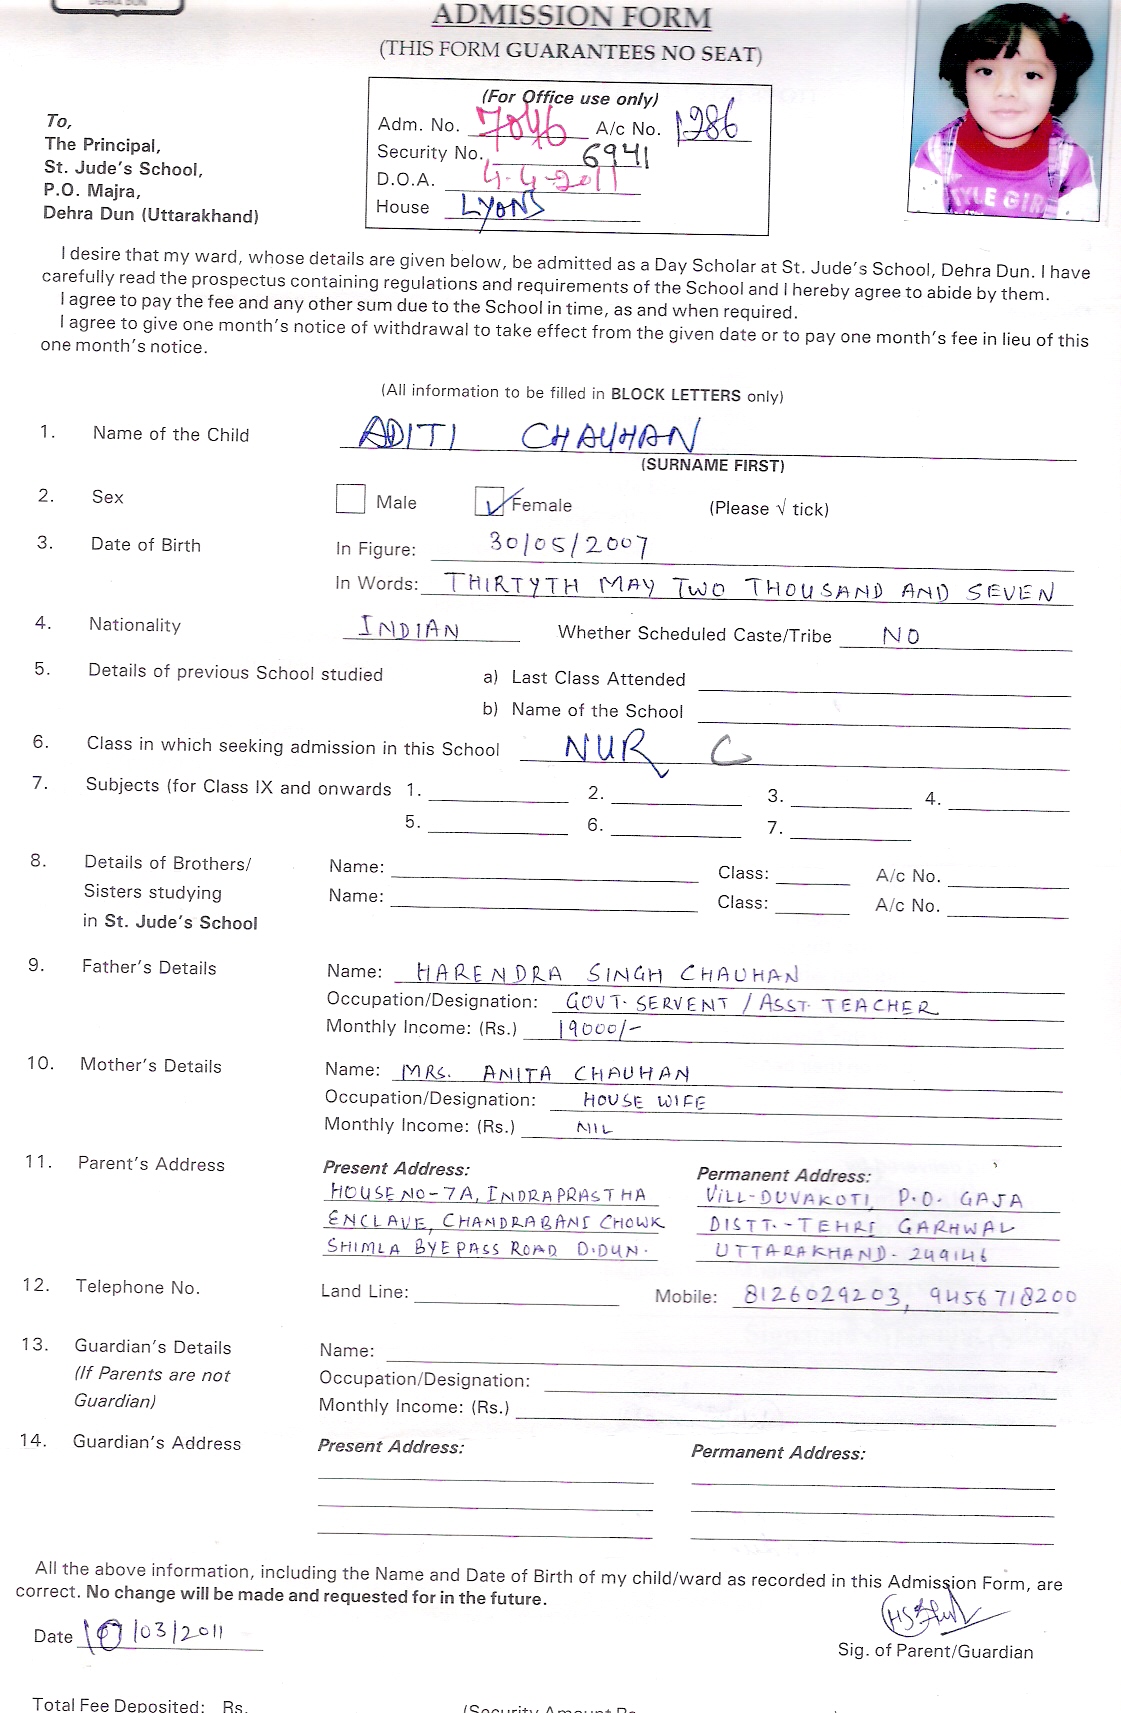 DEHRA DUN
ADMISSION FORM
(THIS FORM GUARANTEES NO SEAT)
(For Office use only)
Adm. No. 7046 A/c No. 1286
Security No. 6941
D.O.A. 4-4-2011
House LYONS
To,
The Principal,
St. Jude's School,
P.O. Majra,
Dehra Dun (Uttarakhand)
STYLE GIR
I desire that my ward, whose details are given below, be admitted as a Day Scholar at St. Jude's School, Dehra Dun. I have
carefully read the prospectus containing regulations and requirements of the School and I hereby agree to abide by them.
I agree to pay the fee and any other sum due to the School in time, as and when required.
I agree to give one month's notice of withdrawal to take effect from the given date or to pay one month's fee in lieu of this
one month's notice.
(All information to be filled in BLOCK LETTERS only)
1. Name of the Child ADITI CHAUHAN
(SURNAME FIRST)
2. Sex Male Female (Please √ tick)
3. Date of Birth In Figure: 30/05/2007
In Words: THIRTYTH MAY TWO THOUSAND AND SEVEN
4. Nationality INDIAN Whether Scheduled Caste/Tribe NO
5. Details of previous School studied a) Last Class Attended
b) Name of the School
6. Class in which seeking admission in this School NUR C
7. Subjects (for Class IX and onwards 1. 2. 3. 4.
5. 6. 7.
8. Details of Brothers/ Name: Class: A/c No.
Sisters studying Name: Class: A/c No.
in St. Jude's School
9. Father's Details Name: HARENDRA SINGH CHAUHAN
Occupation/Designation: GOVT. SERVENT / ASST. TEACHER
Monthly Income: (Rs.) 19000/-
10. Mother's Details Name: MRS. ANITA CHAUHAN
Occupation/Designation: HOUSE WIFE
Monthly Income: (Rs.) NIL
11. Parent's Address Present Address: Permanent Address:
HOUSE NO-7A, INDRAPRASTHA VILL-DUVAKOTI, P.O. GAJA
ENCLAVE, CHANDRABANI CHOWK DISTT.-TEHRI GARHWAL
SHIMLA BYEPASS ROAD D.DUN. UTTARAKHAND-249146
12. Telephone No. Land Line: Mobile: 8126029203, 9456718200
13. Guardian's Details Name:
(If Parents are not Occupation/Designation:
Guardian) Monthly Income: (Rs.)
14. Guardian's Address Present Address: Permanent Address:
All the above information, including the Name and Date of Birth of my child/ward as recorded in this Admission Form, are
correct. No change will be made and requested for in the future.
Date 10/03/2011
Sig. of Parent/Guardian
Total Fee Deposited: Rs. (Security Amount Rs.